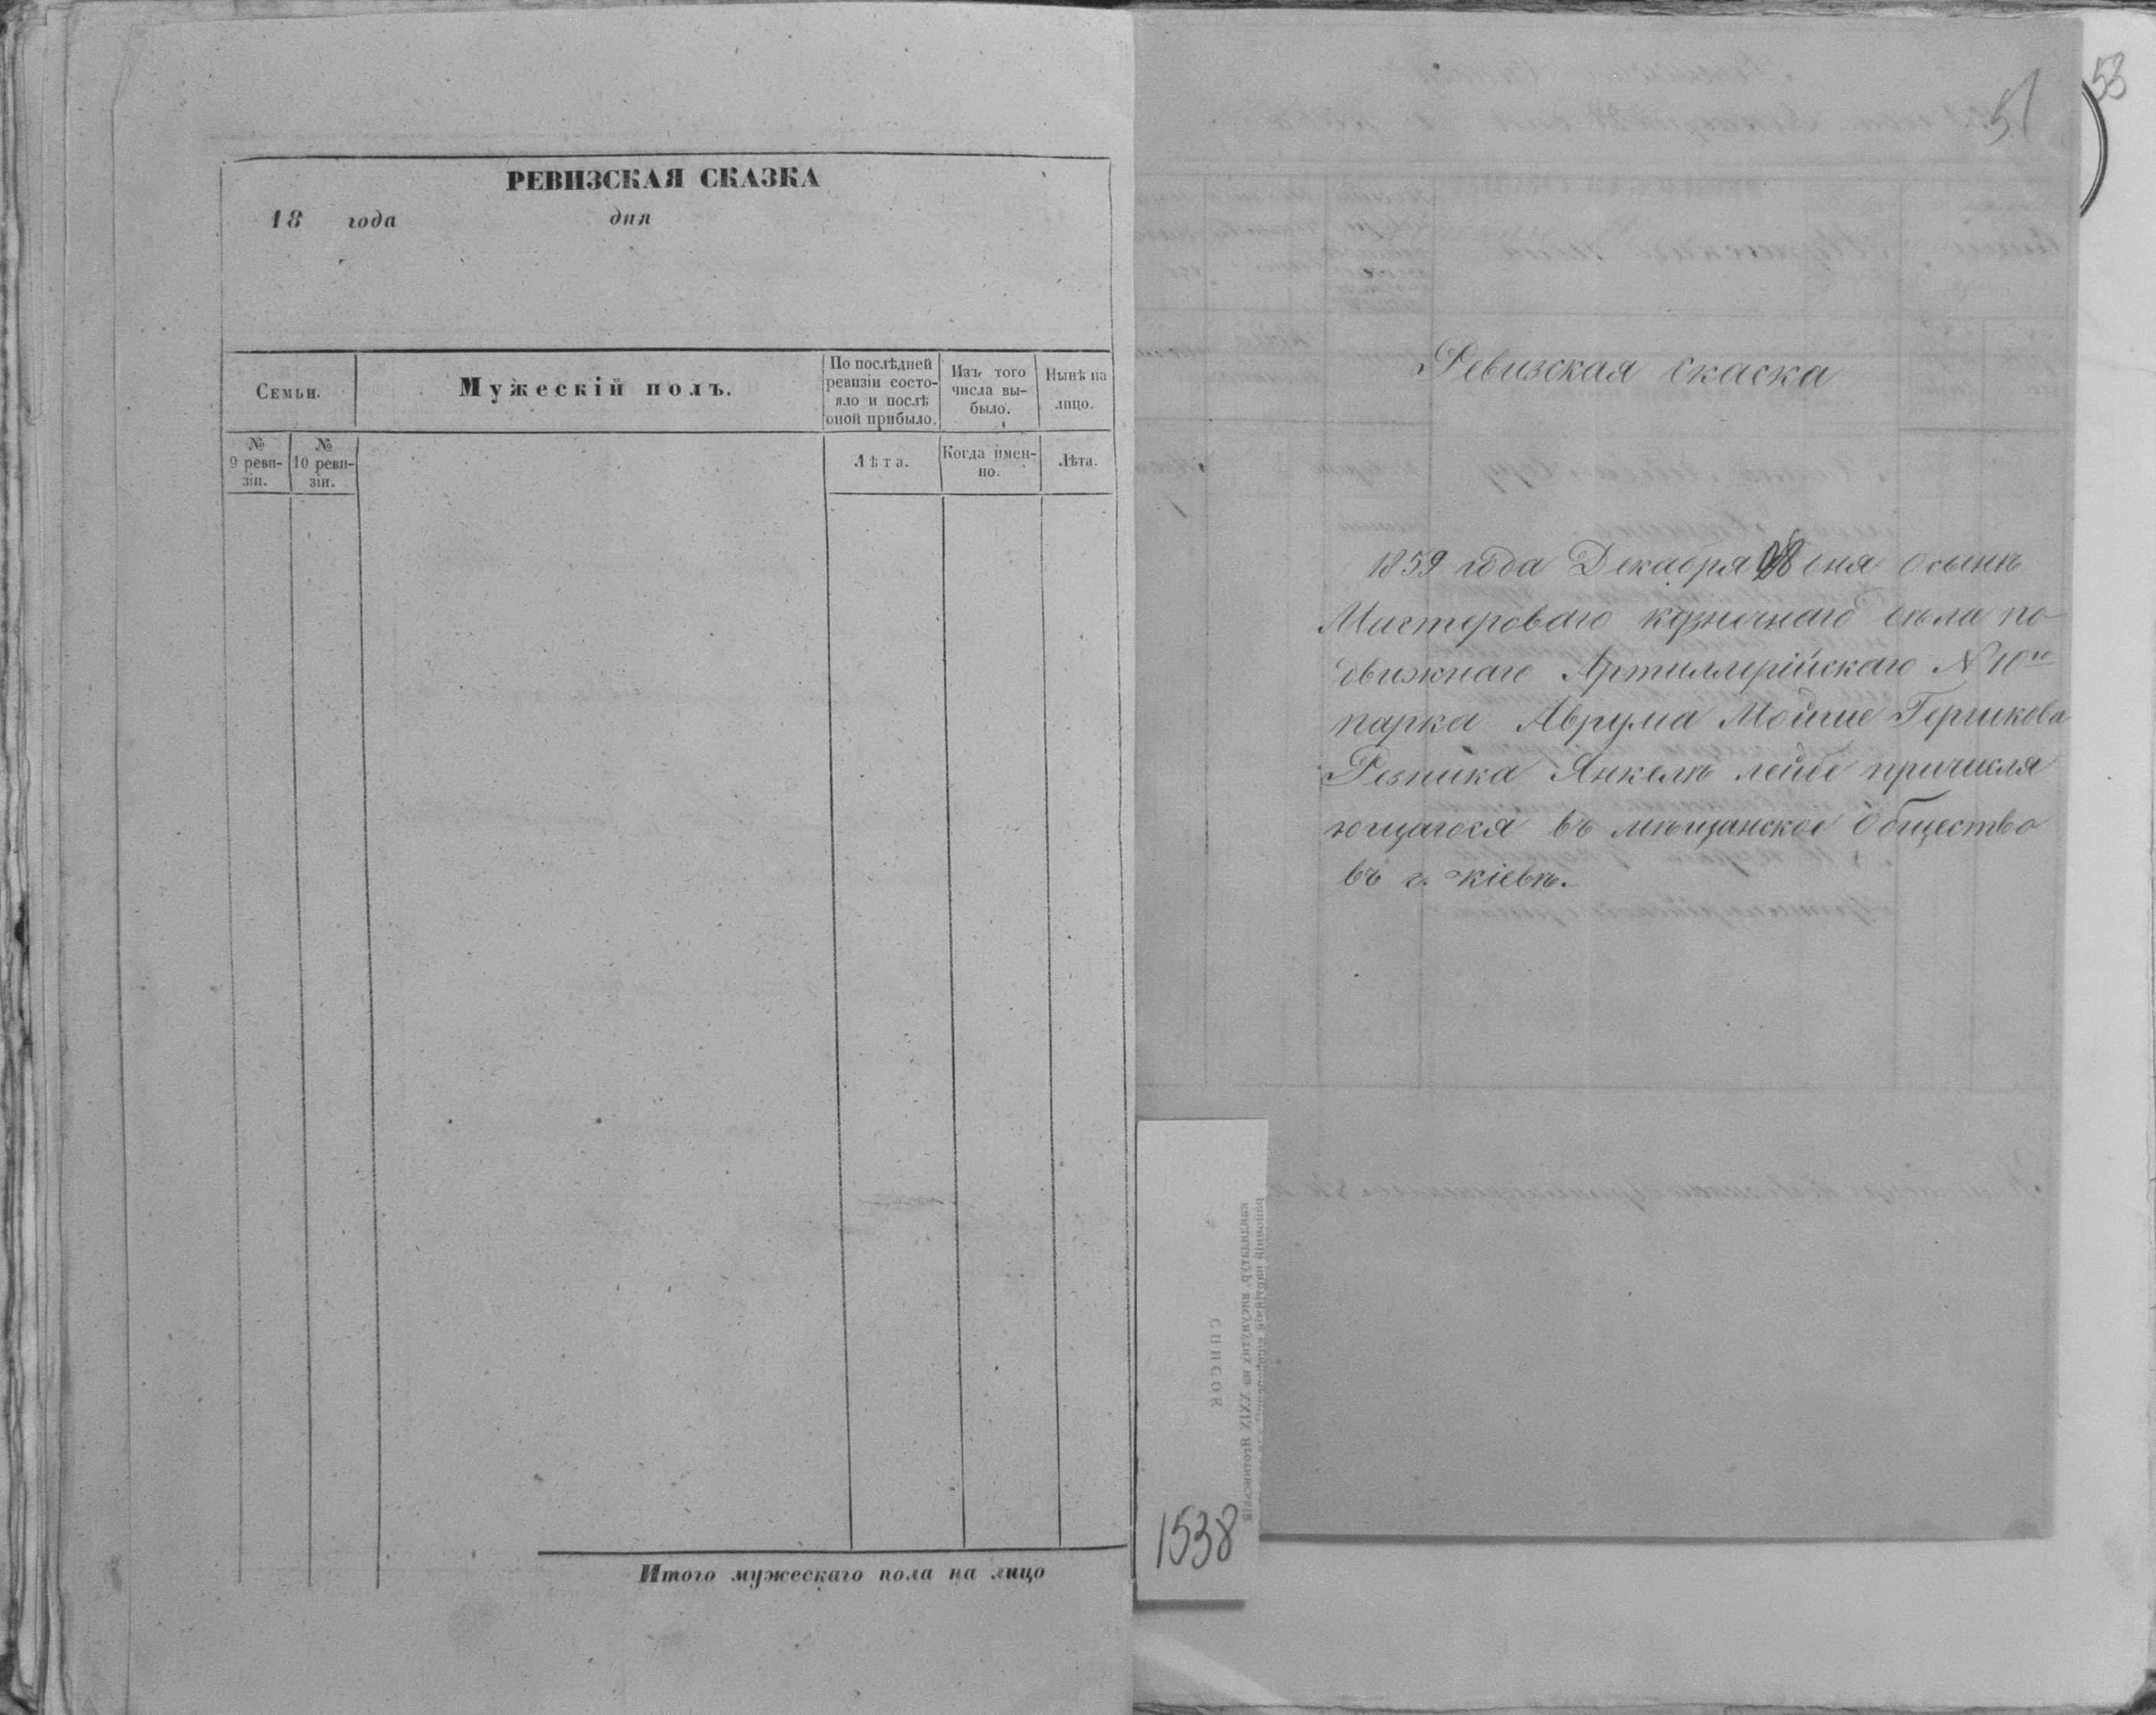 РЕВИЗСКАЯ СКАЗКА
18 года дня
Семьи.
Мужескій полъ.
По послѣдней
ревизіи состо-
яло и послѣ
оной прибыло.
Изъ того
числа вы-
было.
Нынѣ на
лицо.
№
9 реви-
зіи.
№
10 реви-
зіи.
Лѣта.
Когда имен-
но.
Лѣта.
Итого мужескаго пола на лицо
53
51
Ревизская скаска
1859 года Декабря 28 дня о сынѣ
Мастероваго кузнечнаго дѣла по
движнаго Артиллерійскаго N 10го
парка Аврума Мойше Гершкова
Резника Янкелѣ лейбе причисля
ющагося въ мѣщанское Общество
въ г. Кіевѣ.
СПИСОК
кандидатур, висунутих на XXIX Яготинській
1538